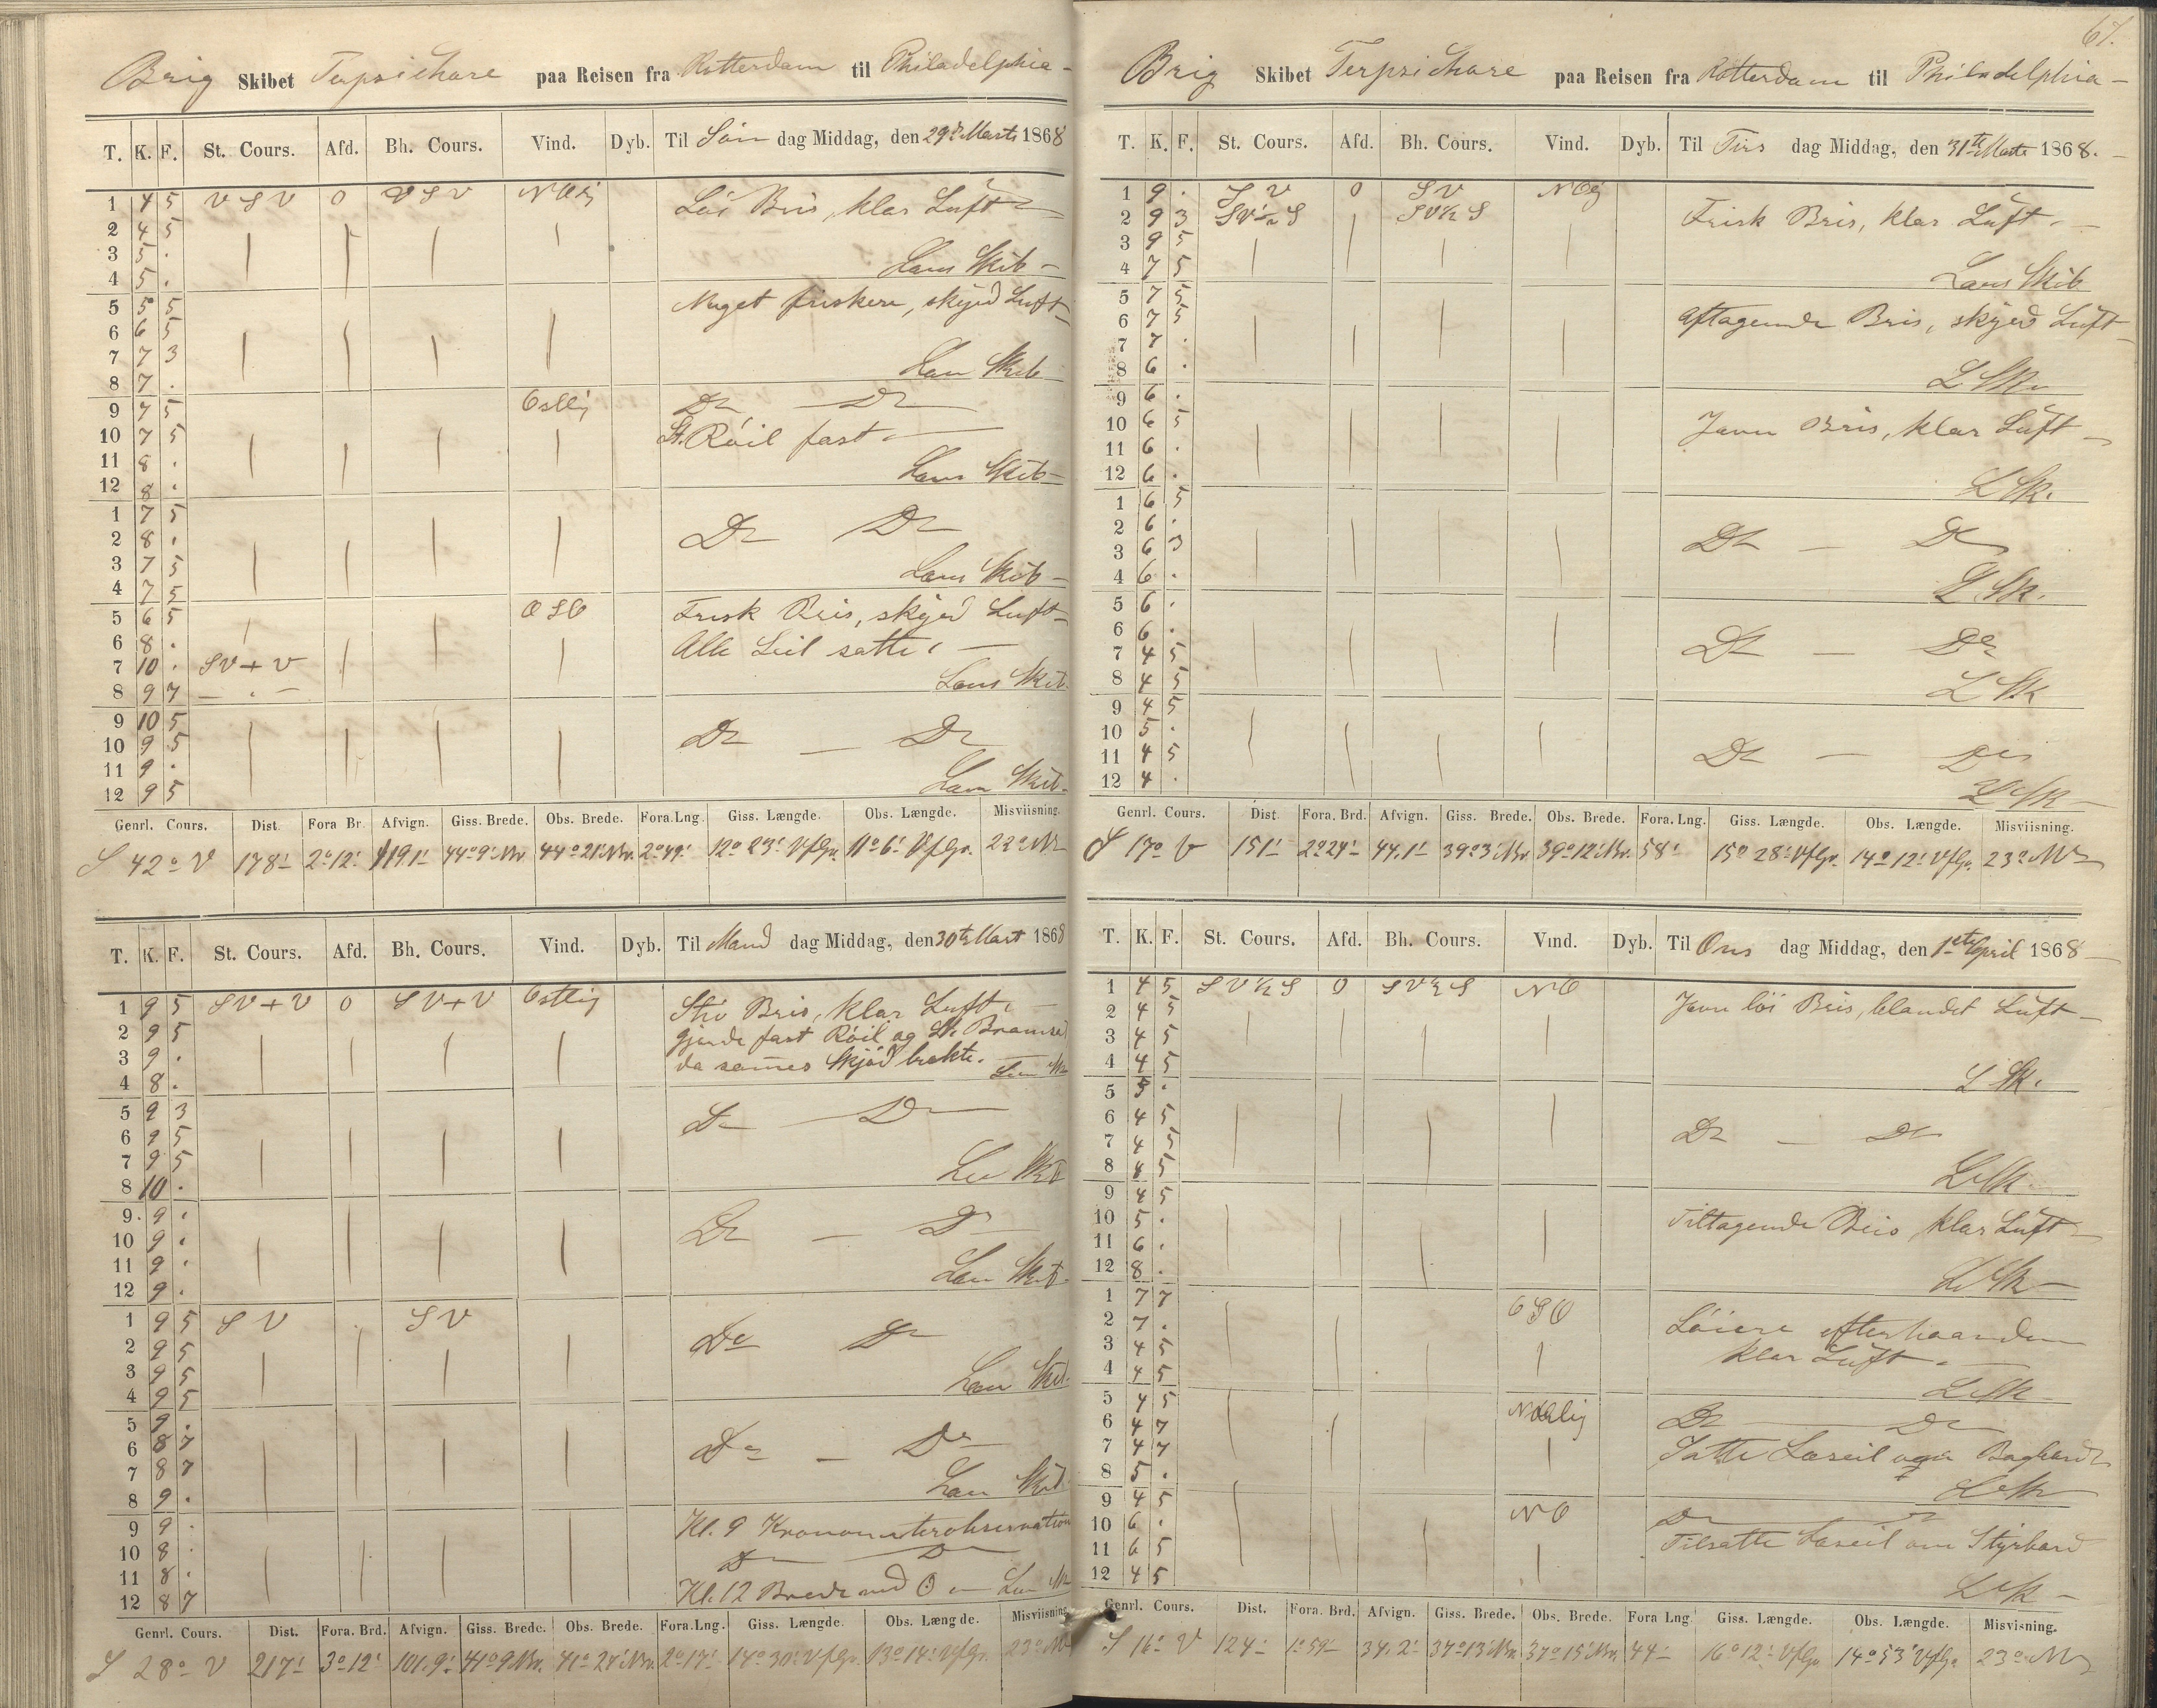 Brig Skibet Terpsichore paa Reisen fra Rotterdam til Philadelphia -
T. K. F. St. Cours. Afd. Bh. Cours. Vind. Dyb. Til Søn dag Middag, den 29de Marts 1868
1 4 5 V S V 0 V S V NOlig Løi Bris, klar Luft
2 4 5
3 5 .
4 5 . Læns Skib -
5 5 5 Noget friskere, skyed Luft -
6 6 5
7 7 3
8 7 . Læns Skib
9 7 5 Østlig Do - Do
10 7 5 St. Røil fast.
11 8 .
12 8 . Læns Skib -
1 7 5
2 8 . Do Do
3 7 5
4 7 5 Læns Skib -
5 6 5 OSO Frisk Bris, skyed Luft -
6 8 . Alle Seil satte. -
7 10 . SV + V
8 9 7 - . - Læns Skib.
9 10 5
10 9 5 Do - Do
11 9 .
12 9 5 Læns Skib.
Genrl. Cours. Dist. Fora Br. Afvign. Giss. Brede. Obs. Brede. Fora.Lng. Giss. Længde. Obs. Længde. Misviisning.
S 42° V 178' 2°12' 119.1' 44°9' Nr. 44°21' Nr. 2°49' 12°23' VfGr. 11°6' VfGr. 22° Nv
T. K. F. St. Cours. Afd. Bh. Cours. Vind. Dyb. Til Mand dag Middag, den 30te Mart 1868
1 9 5 SV + V 0 SV + V Østlig Stiv Bris, klar Luft. -
2 9 5 gjorde fast Røil og St. Bramseil
3 9 . da sammes Skjød brækte.
4 8 .
5 9 3 Do - Do
6 9 5
7 9 5
8 10 . Læns Skib
9 9 .
10 9 . Do - Do
11 9 .
12 9 . Læns Skib.
1 9 5 S V S V
2 9 5 Do Do
3 9 5
4 9 5 Læns Skib.
5 9 .
6 8 7 Do - Do
7 8 7
8 9 . Læns Skib
9 9 . Kl. 9 Kronometerobservation
10 8 . Do Do
11 8 .
12 8 7 Kl. 12 Brede ved ⊙
Genrl. Cours. Dist. Fora. Brd. Afvign. Giss. Brede. Obs. Brede. Fora.Lng. Giss. Længde. Obs. Længde. Misviisning
S 28° V 217' 3°12' 101.9' 41°9 Nr. 41°24' Nr. 2°17' 14°30' VfGr. 13°14' VfGr. 23° Nv
67.
Brig Skibet Terpsichore paa Reisen fra Rotterdam til Philadelphia -
T. K. F. St. Cours. Afd. Bh. Cours. Vind. Dyb. Til Tirs dag Middag, den 31te Marts 1868. -
1 9 . S V 0 S V NOlig
2 9 3 SV½S SV½S Frisk Bris, klar Luft. -
3 9 5
4 7 5 Læns Skib
5 7 5
6 7 5 Aftagende Bris, skyed Luft -
7 7 .
8 6 . L Sk.
9 6 .
10 6 5 Javn Bris, klar Luft -
11 6 .
12 6 . L Sk.
1 6 5
2 6 .
3 6 3 Do - Do
4 6 . L Sk.
5 6 .
6 6 .
7 4 5 Do - Do
8 4 5 L Sk
9 4 5
10 5 .
11 4 5 Do - Do
12 4 . L Sk -
Genrl. Cours. Dist. Fora. Brd. Afvign. Giss. Brede. Obs. Brede. Fora. Lng. Giss. Længde. Obs. Længde. Misviisning.
S 17° V 151' 2°24' 44.1' 39°3' Nr. 39°12' Nr. 58' 15°28' VfGr. 14°12' VfGr. 23° Nv
T. K. F. St. Cours. Afd. Bh. Cours. Vind. Dyb. Til Ons dag Middag, den 1ste April 1868 -
1 4 5 SV½S 0 SV½S NO Javn løi Bris, blandet Luft -
2 4 5
3 4 5
4 4 5 L Sk.
5 5 .
6 4 5
7 4 5 Do - Do
8 4 5 L Sk.
9 4 5
10 5 . Tiltagende Bris, klar Luft -
11 6 .
12 8 . L Sk -
1 7 7 OSO
2 7 . Løiere efterhaanden
3 4 5 klar Luft. -
4 4 5 L Sk
5 4 5
6 4 7 Do Do
7 4 7 Satte Læseil om Bagbord
8 5 . L Sk
9 4 5 NO
10 6 . Do
11 6 5 Tilsatte Læseil om Styrbord
12 4 5 L Sk -
Genrl. Cours. Dist. Fora. Brd. Afvign. Giss. Brede. Obs. Brede. Fora Lng. Giss. Længde. Obs. Længde. Misvisning.
S 16° V 124' 1°59' 34.2' 37°13' Nr. 37°15' Nr. 44' 16°12' VfGr. 14°53' VfGr. 23° Nv